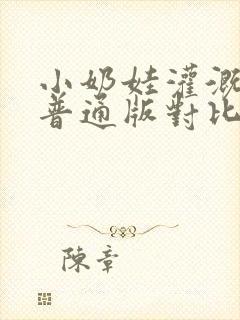 小奶娃灌溉
普通版對比
陳章